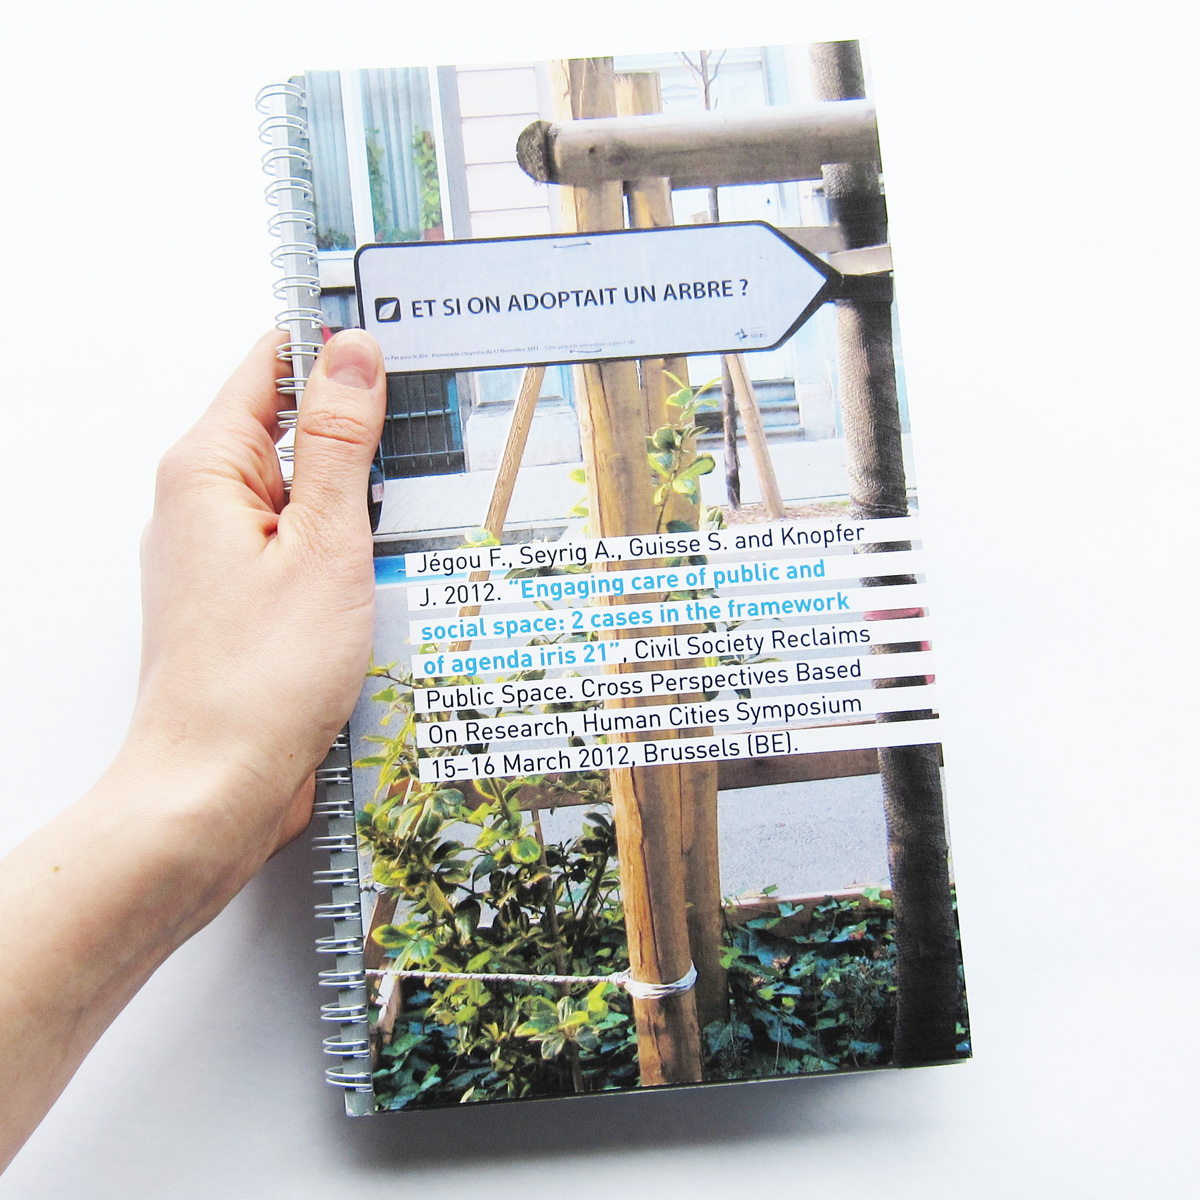 ET SI ON ADOPTAIT UN ARBRE ?
Pas pour le dire. Promenade citoyenne du 12 Novembre 2011
Jégou F., Seyrig A., Guisse S. and Knopfer
J. 2012. “Engaging care of public and
social space: 2 cases in the framework
of agenda iris 21”, Civil Society Reclaims
Public Space. Cross Perspectives Based
On Research, Human Cities Symposium
15–16 March 2012, Brussels (BE).